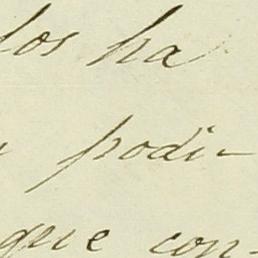 los ha
podi-
que con-